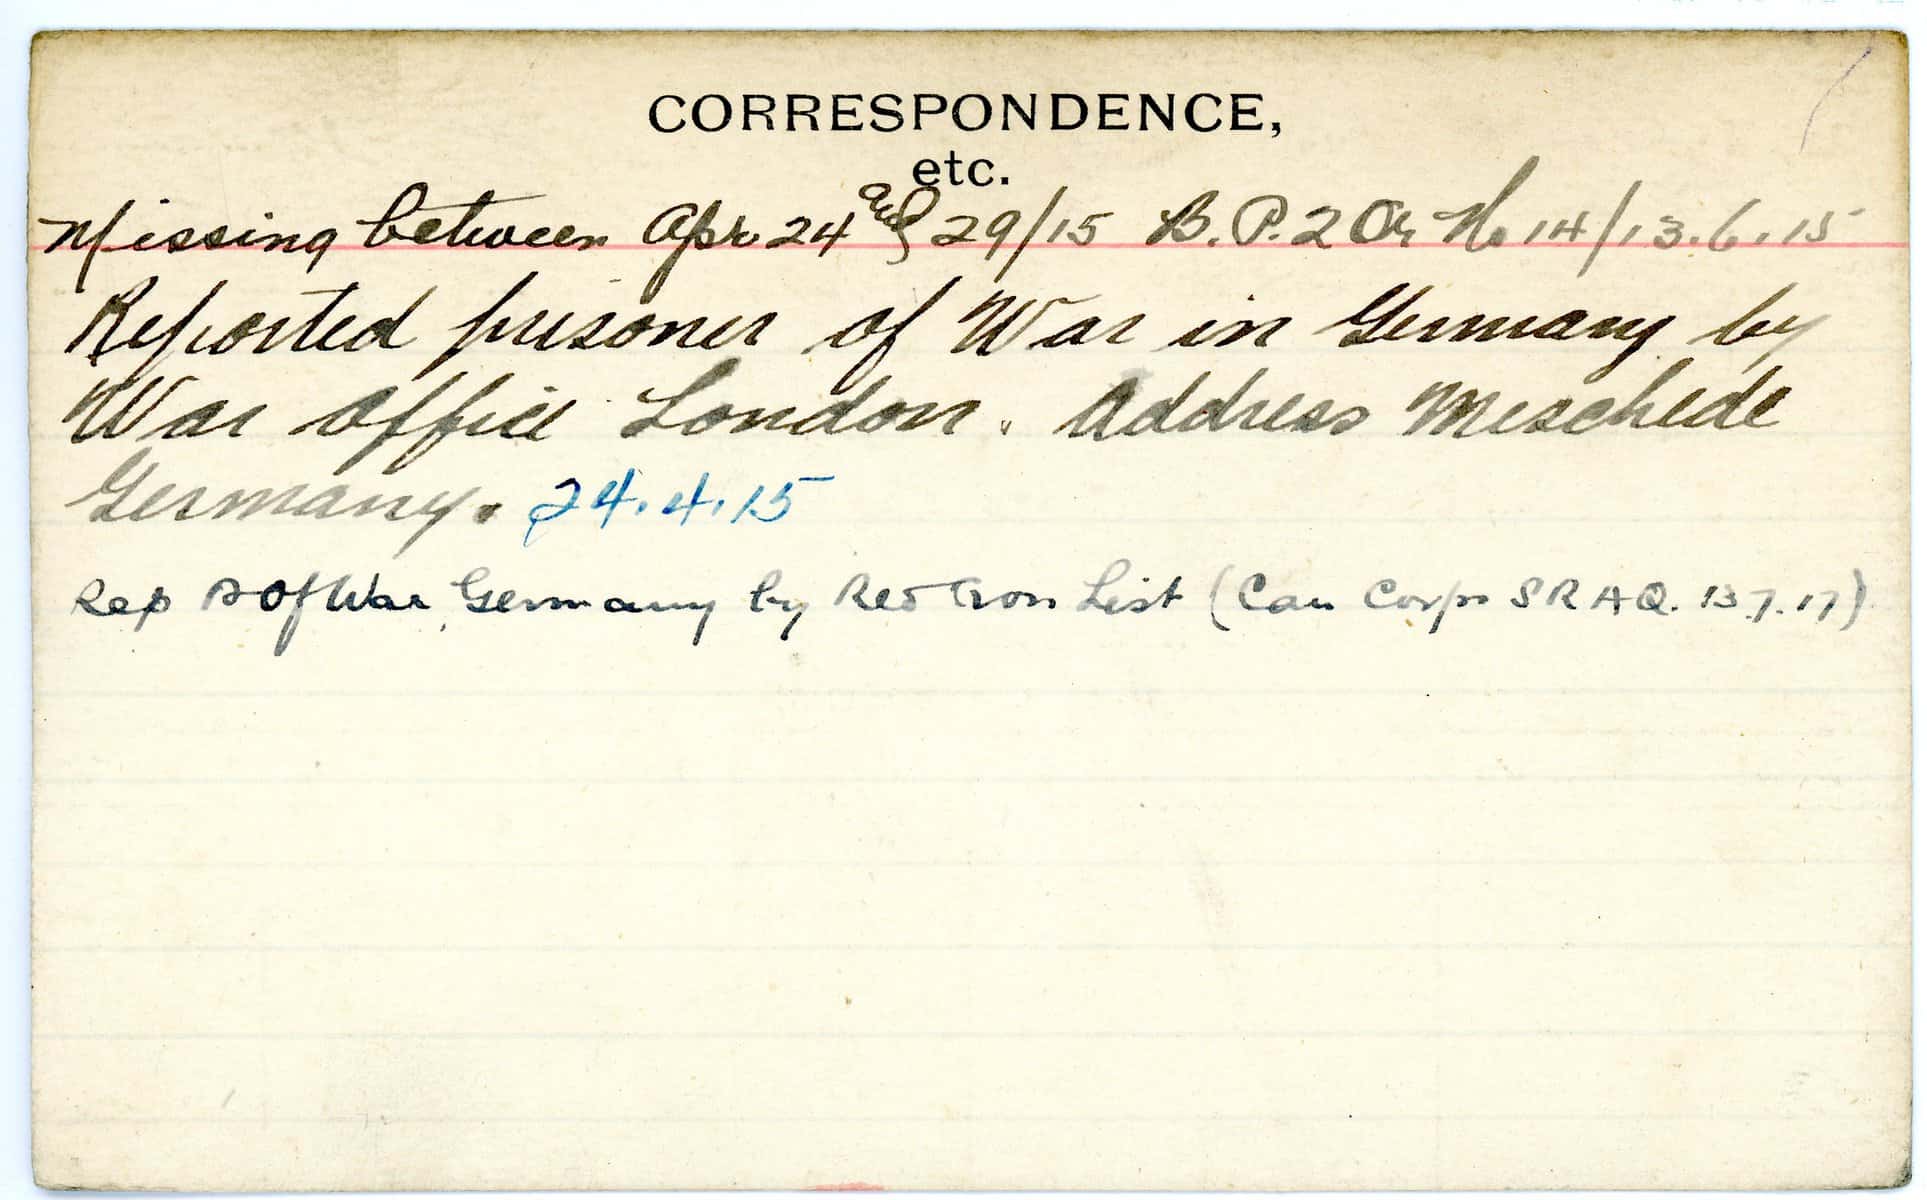 CORRESPONDENCE,
etc.
Missing between Apr 24 and 29/15 B.P.2 Or No 14/13.6.15
Reported prisoner of War in Germany by
War Office London. Address Meschede
Germany. 24.4.15
Rep P of War Germany by Red Cross List (Can Corps S R A Q. 13.7.17)